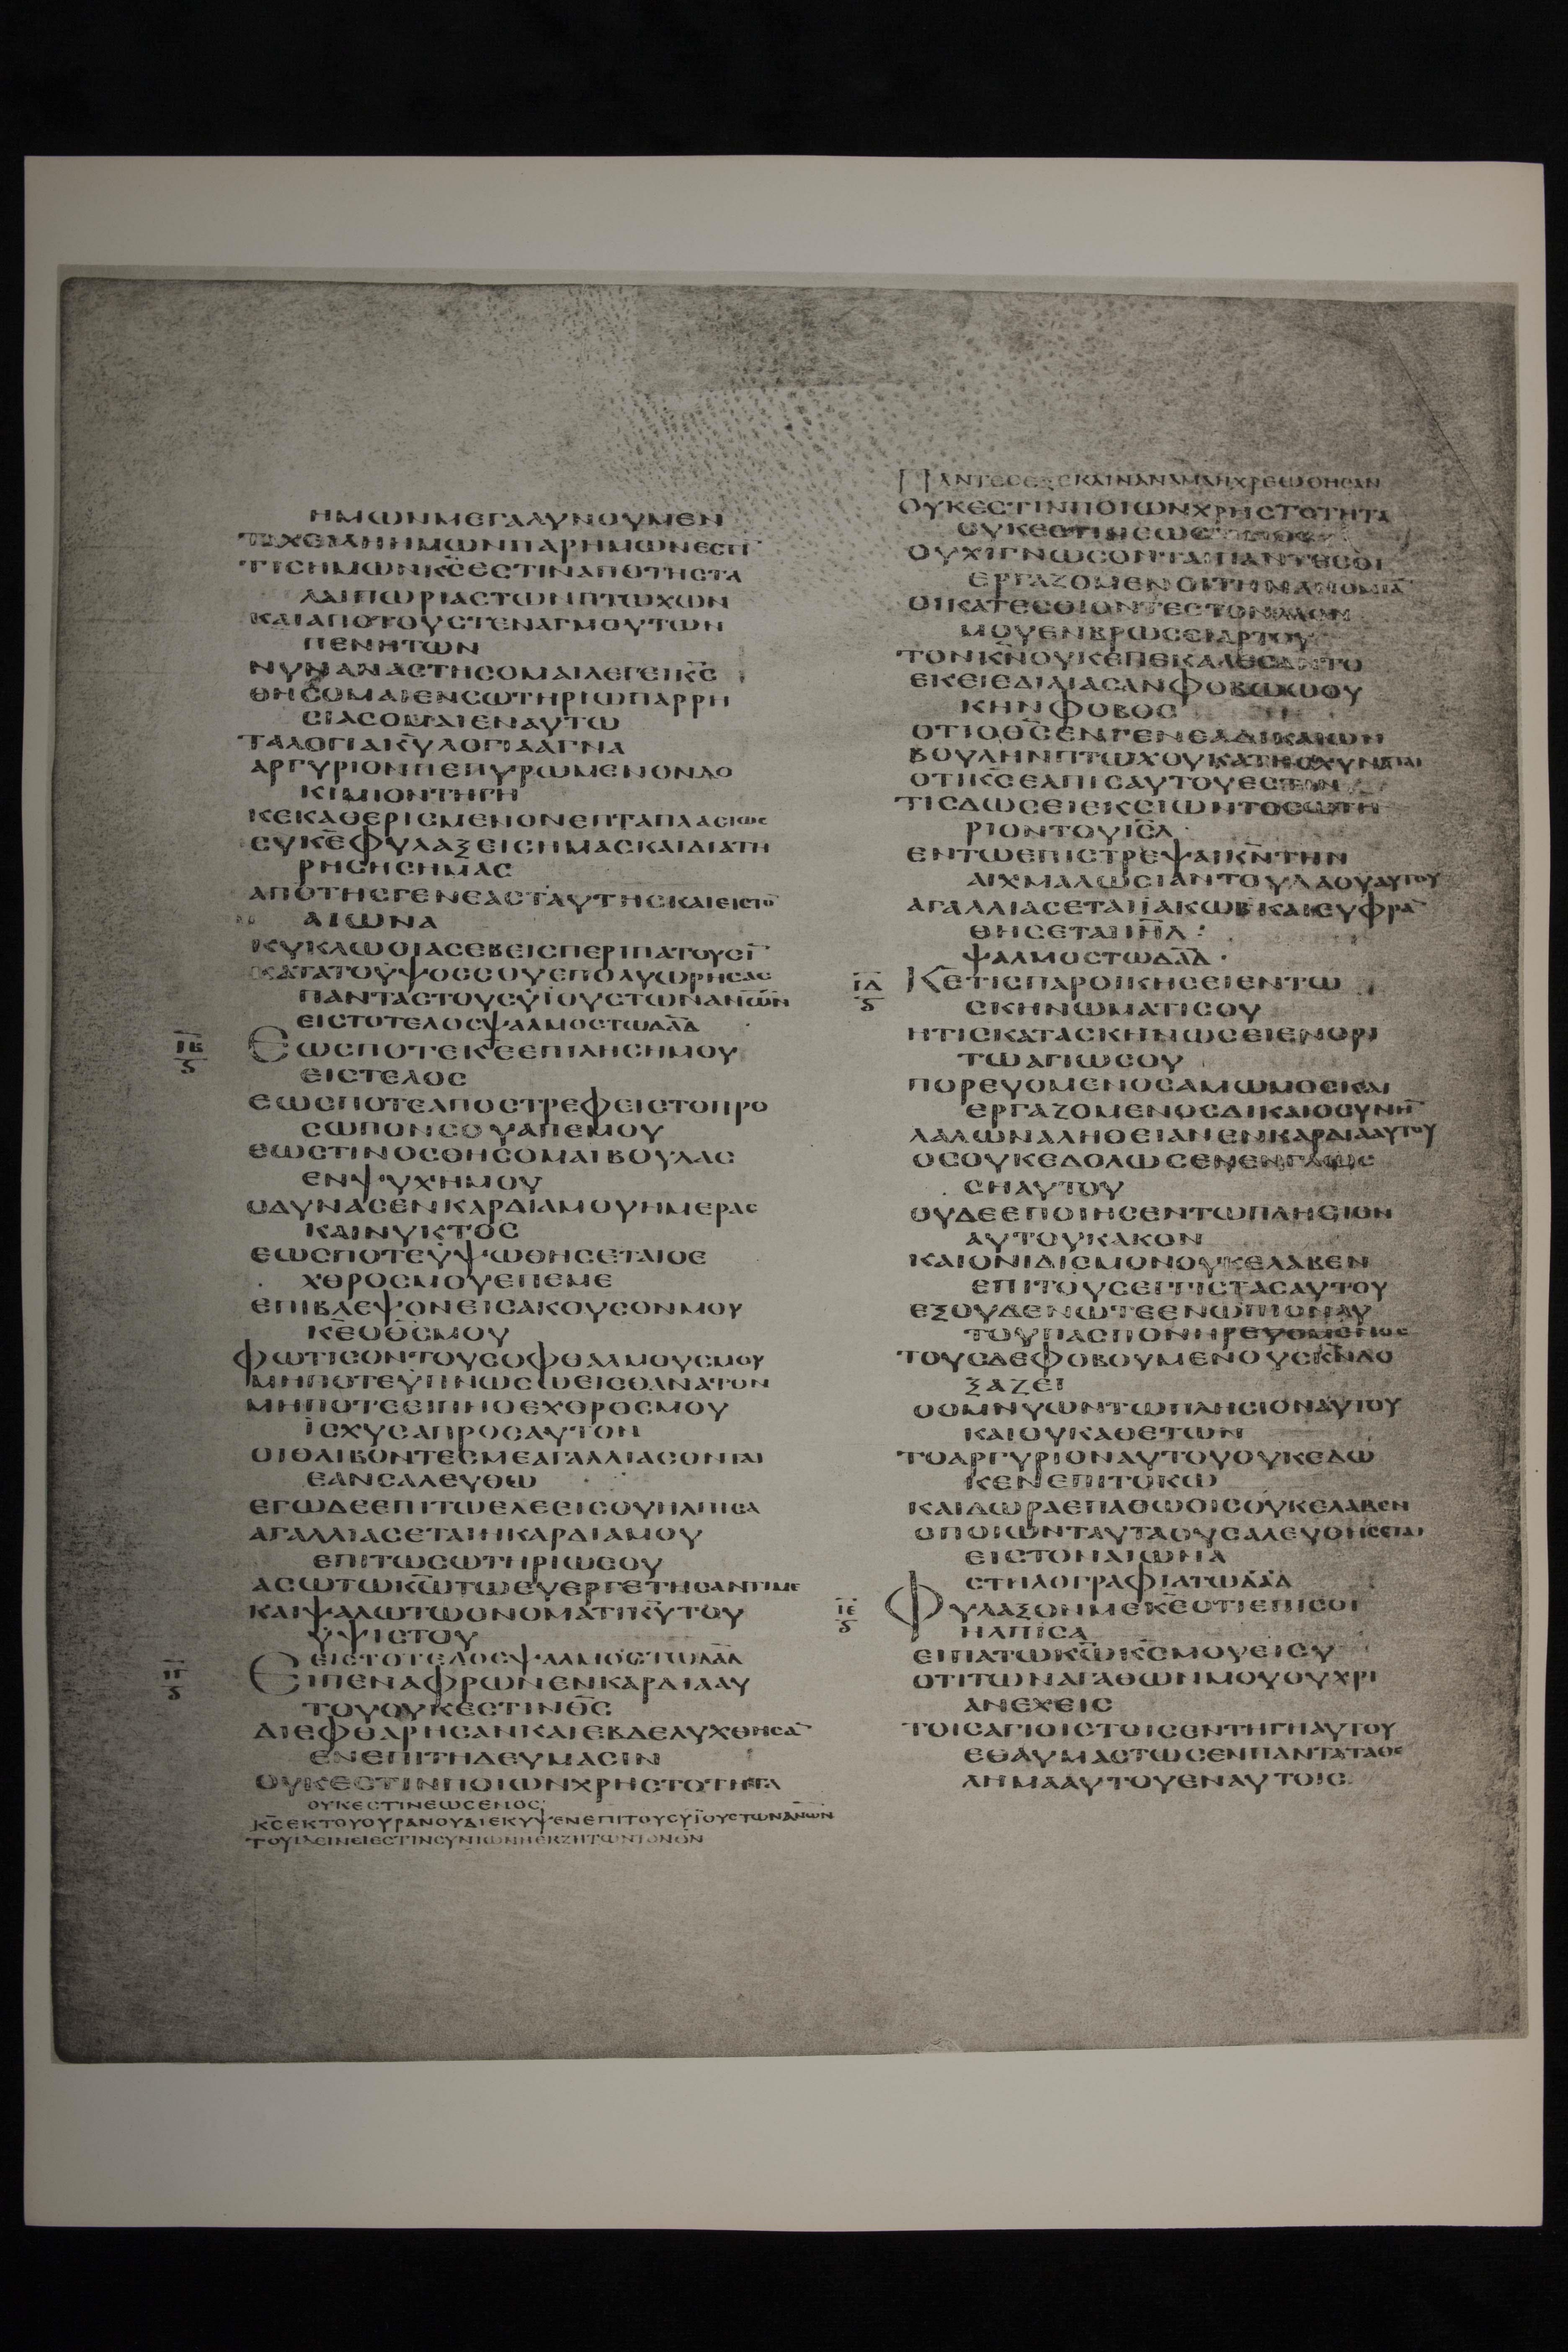 ΗΜΩΝΜΕΓΑΛΥΝΟΥΜΕΝ
ΤΑΧΕΙΛΗΗΜΩΝΠΑΡΗΜΩΝΕΣΤΙ̅
ΤΙΣΗΜΩΝΚ̅Σ̅ΕΣΤΙΝΑΠΟΤΗΣΤΑ
ΛΑΙΠΩΡΙΑΣΤΩΝΠΤΩΧΩΝ
ΚΑΙΑΠΟΤΟΥΣΤΕΝΑΓΜΟΥΤΩΝ
ΠΕΝΗΤΩΝ
ΝΥΝΑΝΑΣΤΗΣΟΜΑΙΛΕΓΕΙΚ̅Σ̅
ΘΗΣΟΜΑΙΕΝΣΩΤΗΡΙΩΠΑΡΡΗ
ΣΙΑΣΟΜΑΙΕΝΑΥΤΩ
ΤΑΛΟΓΙΑΚ̅Υ̅ΛΟΓΙΑΑΓΝΑ
ΑΡΓΥΡΙΟΝΠΕΠΥΡΩΜΕΝΟΝΔΟ
ΚΙΜΙΟΝΤΗΓΗ
ΚΕΚΑΘΕΡΙΣΜΕΝΟΝΕΠΤΑΠΛΑΣΙΩΣ
ΣΥΚ̅Ε̅ΦΥΛΑΞΕΙΣΗΜΑΣΚΑΙΔΙΑΤΗ
ΡΗΣΗΣΗΜΑΣ
ΑΠΟΤΗΣΓΕΝΕΑΣΤΑΥΤΗΣΚΑΙΕΙΣΤΟ̅
ΑΙΩΝΑ
ΚΥΚΛΩΟΙΑΣΕΒΕΙΣΠΕΡΙΠΑΤΟΥΣΙ̅
ΚΑΤΑΤΟΥΨΟΣΣΟΥΕΠΟΛΥΩΡΗΣΑΣ
ΠΑΝΤΑΣΤΟΥΣΥΪΟΥΣΤΩΝΑΝ̅Ω̅Ν̅
ΕΙΣΤΟΤΕΛΟΣΨΑΛΜΟΣΤΩΔ̅Α̅Δ̅
ΙΒ
ΕΩΣΠΟΤΕΚ̅Ε̅ΕΠΙΛΗΣΗΜΟΥ
ΕΙΣΤΕΛΟΣ
ΕΩΣΠΟΤΕΑΠΟΣΤΡΕΦΕΙΣΤΟΠΡΟ
ΣΩΠΟΝΣΟΥΑΠΕΜΟΥ
ΕΩΣΤΙΝΟΣΘΗΣΟΜΑΙΒΟΥΛΑΣ
ΕΝΨΥΧΗΜΟΥ
ΟΔΥΝΑΣΕΝΚΑΡΔΙΑΜΟΥΗΜΕΡΑΣ
ΚΑΙΝΥΚΤΟΣ
ΕΩΣΠΟΤΕΥΨΩΘΗΣΕΤΑΙΟΕ
ΧΘΡΟΣΜΟΥΕΠΕΜΕ
ΕΠΙΒΛΕΨΟΝΕΙΣΑΚΟΥΣΟΝΜΟΥ
Κ̅Ε̅ΟΘ̅Σ̅ΜΟΥ
ΦΩΤΙΣΟΝΤΟΥΣΟΦΘΑΛΜΟΥΣΜΟΥ
ΜΗΠΟΤΕΥΠΝΩΣΩΕΙΣΘΑΝΑΤΟΝ
ΜΗΠΟΤΕΕΙΠΗΟΕΧΘΡΟΣΜΟΥ
ΪΣΧΥΣΑΠΡΟΣΑΥΤΟΝ
ΟΙΘΛΙΒΟΝΤΕΣΜΕΑΓΑΛΛΙΑΣΟΝΤΑΙ
ΕΑΝΣΑΛΕΥΘΩ
ΕΓΩΔΕΕΠΙΤΩΕΛΕΕΙΣΟΥΗΛΠΙΣΑ
ΑΓΑΛΛΙΑΣΕΤΑΙΗΚΑΡΔΙΑΜΟΥ
ΕΠΙΤΩΣΩΤΗΡΙΩΣΟΥ
ΑΣΩΤΩΚ̅Ω̅ΤΩΕΥΕΡΓΕΤΗΣΑΝΤΙΜΕ
ΚΑΙΨΑΛΩΤΩΟΝΟΜΑΤΙΚ̅Υ̅ΤΟΥ
ΥΨΙΣΤΟΥ
ΕΙΣΤΟΤΕΛΟΣΨΑΛΜΟΣΤΩΔ̅Α̅Δ̅
ΙΓ
ΕΙΠΕΝΑΦΡΩΝΕΝΚΑΡΔΙΑΑΥ
ΤΟΥΟΥΚΕΣΤΙΝΘ̅Σ̅
ΔΙΕΦΘΑΡΗΣΑΝΚΑΙΕΒΔΕΛΥΧΘΗΣΑ̅
ΕΝΕΠΙΤΗΔΕΥΜΑΣΙΝ
ΟΥΚΕΣΤΙΝΠΟΙΩΝΧΡΗΣΤΟΤΗΤΑ
ΟΥΚΕΣΤΙΝΕΩΣΕΝΟΣ
Κ̅Σ̅ΕΚΤΟΥΟΥΡΑΝΟΥΔΙΕΚΥΨΕΝΕΠΙΤΟΥΣΥΪΟΥΣΤΩΝΑΝ̅Ω̅Ν̅
ΤΟΥΙΔΕΙΝΕΙΕΣΤΙΝΣΥΝΙΩΝΗΕΚΖΗΤΩΝΤΟΝΘ̅Ν̅
ΠΑΝΤΕΣΕΞΕΚΛΙΝΑΝΑΜΑΗΧΡΕΩΘΗΣΑΝ
ΟΥΚΕΣΤΙΝΠΟΙΩΝΧΡΗΣΤΟΤΗΤΑ
ΟΥΚΕΣΤΙΝΕΩΣ
ΟΥΧΙΓΝΩΣΟΝΤΑΙΠΑΝΤΕΣΟΙ
ΕΡΓΑΖΟΜΕΝΟΙΤΗΝΑΝΟΜΙΑ̅
ΟΙΚΑΤΕΣΘΙΟΝΤΕΣΤΟΝΛΑΟΝ
ΜΟΥΕΝΒΡΩΣΕΙΑΡΤΟΥ
ΤΟΝΚ̅Ν̅ΟΥΚΕΠΕΚΑΛΕΣΑΝΤΟ
ΕΚΕΙΕΔΙΛΙΑΣΑΝΦΟΒΩΟΥΟΥ
ΚΗΝΦΟΒΟΣ
ΟΤΙΟΘ̅Σ̅ΕΝΓΕΝΕΑΔΙΚΑΙΩΝ
ΒΟΥΛΗΝΠΤΩΧΟΥΚΑΤΗΣΧΥΝΑΤΑΙ
ΟΤΙΚ̅Σ̅ΕΛΠΙΣΑΥΤΟΥΕΣΤΙΝ
ΤΙΣΔΩΣΕΙΕΚΣΙΩΝΤΟΣΩΤΗ
ΡΙΟΝΤΟΥΙ̅Σ̅Λ̅
ΕΝΤΩΕΠΙΣΤΡΕΨΑΙΚ̅Ν̅ΤΗΝ
ΑΙΧΜΑΛΩΣΙΑΝΤΟΥΛΑΟΥΑΥΤΟΥ
ΑΓΑΛΛΙΑΣΕΤΑΙΙΑΚΩΒΚΑΙΕΥΦΡΑ̅
ΘΗΣΕΤΑΙΙ̅Η̅Λ̅:
ΨΑΛΜΟΣΤΩΔ̅Α̅Δ̅·
ΙΔ
Κ̅Ε̅ΤΙΣΠΑΡΟΙΚΗΣΕΙΕΝΤΩ
ΣΚΗΝΩΜΑΤΙΣΟΥ
ΗΤΙΣΚΑΤΑΣΚΗΝΩΣΕΙΕΝΟΡΙ
ΤΩΑΓΙΩΣΟΥ
ΠΟΡΕΥΟΜΕΝΟΣΑΜΩΜΟΣΚΑΙ
ΕΡΓΑΖΟΜΕΝΟΣΔΙΚΑΙΟΣΥΝΗ̅
ΛΑΛΩΝΑΛΗΘΕΙΑΝΕΝΚΑΡΔΙΑΑΥΤΟΥ
ΟΣΟΥΚΕΔΟΛΩΣΕΝΕΝΓΛΩΣ
ΣΗΑΥΤΟΥ
ΟΥΔΕΕΠΟΙΗΣΕΝΤΩΠΛΗΣΙΟΝ
ΑΥΤΟΥΚΑΚΟΝ
ΚΑΙΟΝΙΔΙΣΜΟΝΟΥΚΕΛΑΒΕΝ
ΕΠΙΤΟΥΣΕΓΓΙΣΤΑΣΑΥΤΟΥ
ΕΞΟΥΔΕΝΩΤΕΕΝΩΠΙΟΝΑΥ
ΤΟΥΠΑΣΠΟΝΗΡΕΥΟΜΕΝΟΣ
ΤΟΥΣΔΕΦΟΒΟΥΜΕΝΟΥΣΚ̅Ν̅ΔΟ
ΞΑΖΕΙ
ΟΟΜΝΥΩΝΤΩΠΛΗΣΙΟΝΑΥΤΟΥ
ΚΑΙΟΥΚΑΘΕΤΩΝ
ΤΟΑΡΓΥΡΙΟΝΑΥΤΟΥΟΥΚΕΔΩ
ΚΕΝΕΠΙΤΟΚΩ
ΚΑΙΔΩΡΑΕΠΑΘΩΟΙΣΟΥΚΕΛΑΒΕΝ
ΟΠΟΙΩΝΤΑΥΤΑΟΥΣΑΛΕΥΘΗΣΕΤΑΙ
ΕΙΣΤΟΝΑΙΩΝΑ
ΣΤΗΛΟΓΡΑΦΙΑΤΩΔ̅Α̅Δ̅
ΙΕ
ΦΥΛΑΞΟΝΜΕΚ̅Ε̅ΟΤΙΕΠΙΣΟΙ
ΗΛΠΙΣΑ
ΕΙΠΑΤΩΚ̅Ω̅Κ̅Σ̅ΜΟΥΕΙΣΥ
ΟΤΙΤΩΝΑΓΑΘΩΝΜΟΥΟΥΧΡΙ
ΑΝΕΧΕΙΣ
ΤΟΙΣΑΓΙΟΙΣΤΟΙΣΕΝΤΗΓΗΑΥΤΟΥ
ΕΘΑΥΜΑΣΤΩΣΕΝΠΑΝΤΑΤΑΘΕ
ΛΗΜΑΑΥΤΟΥΕΝΑΥΤΟΙΣ